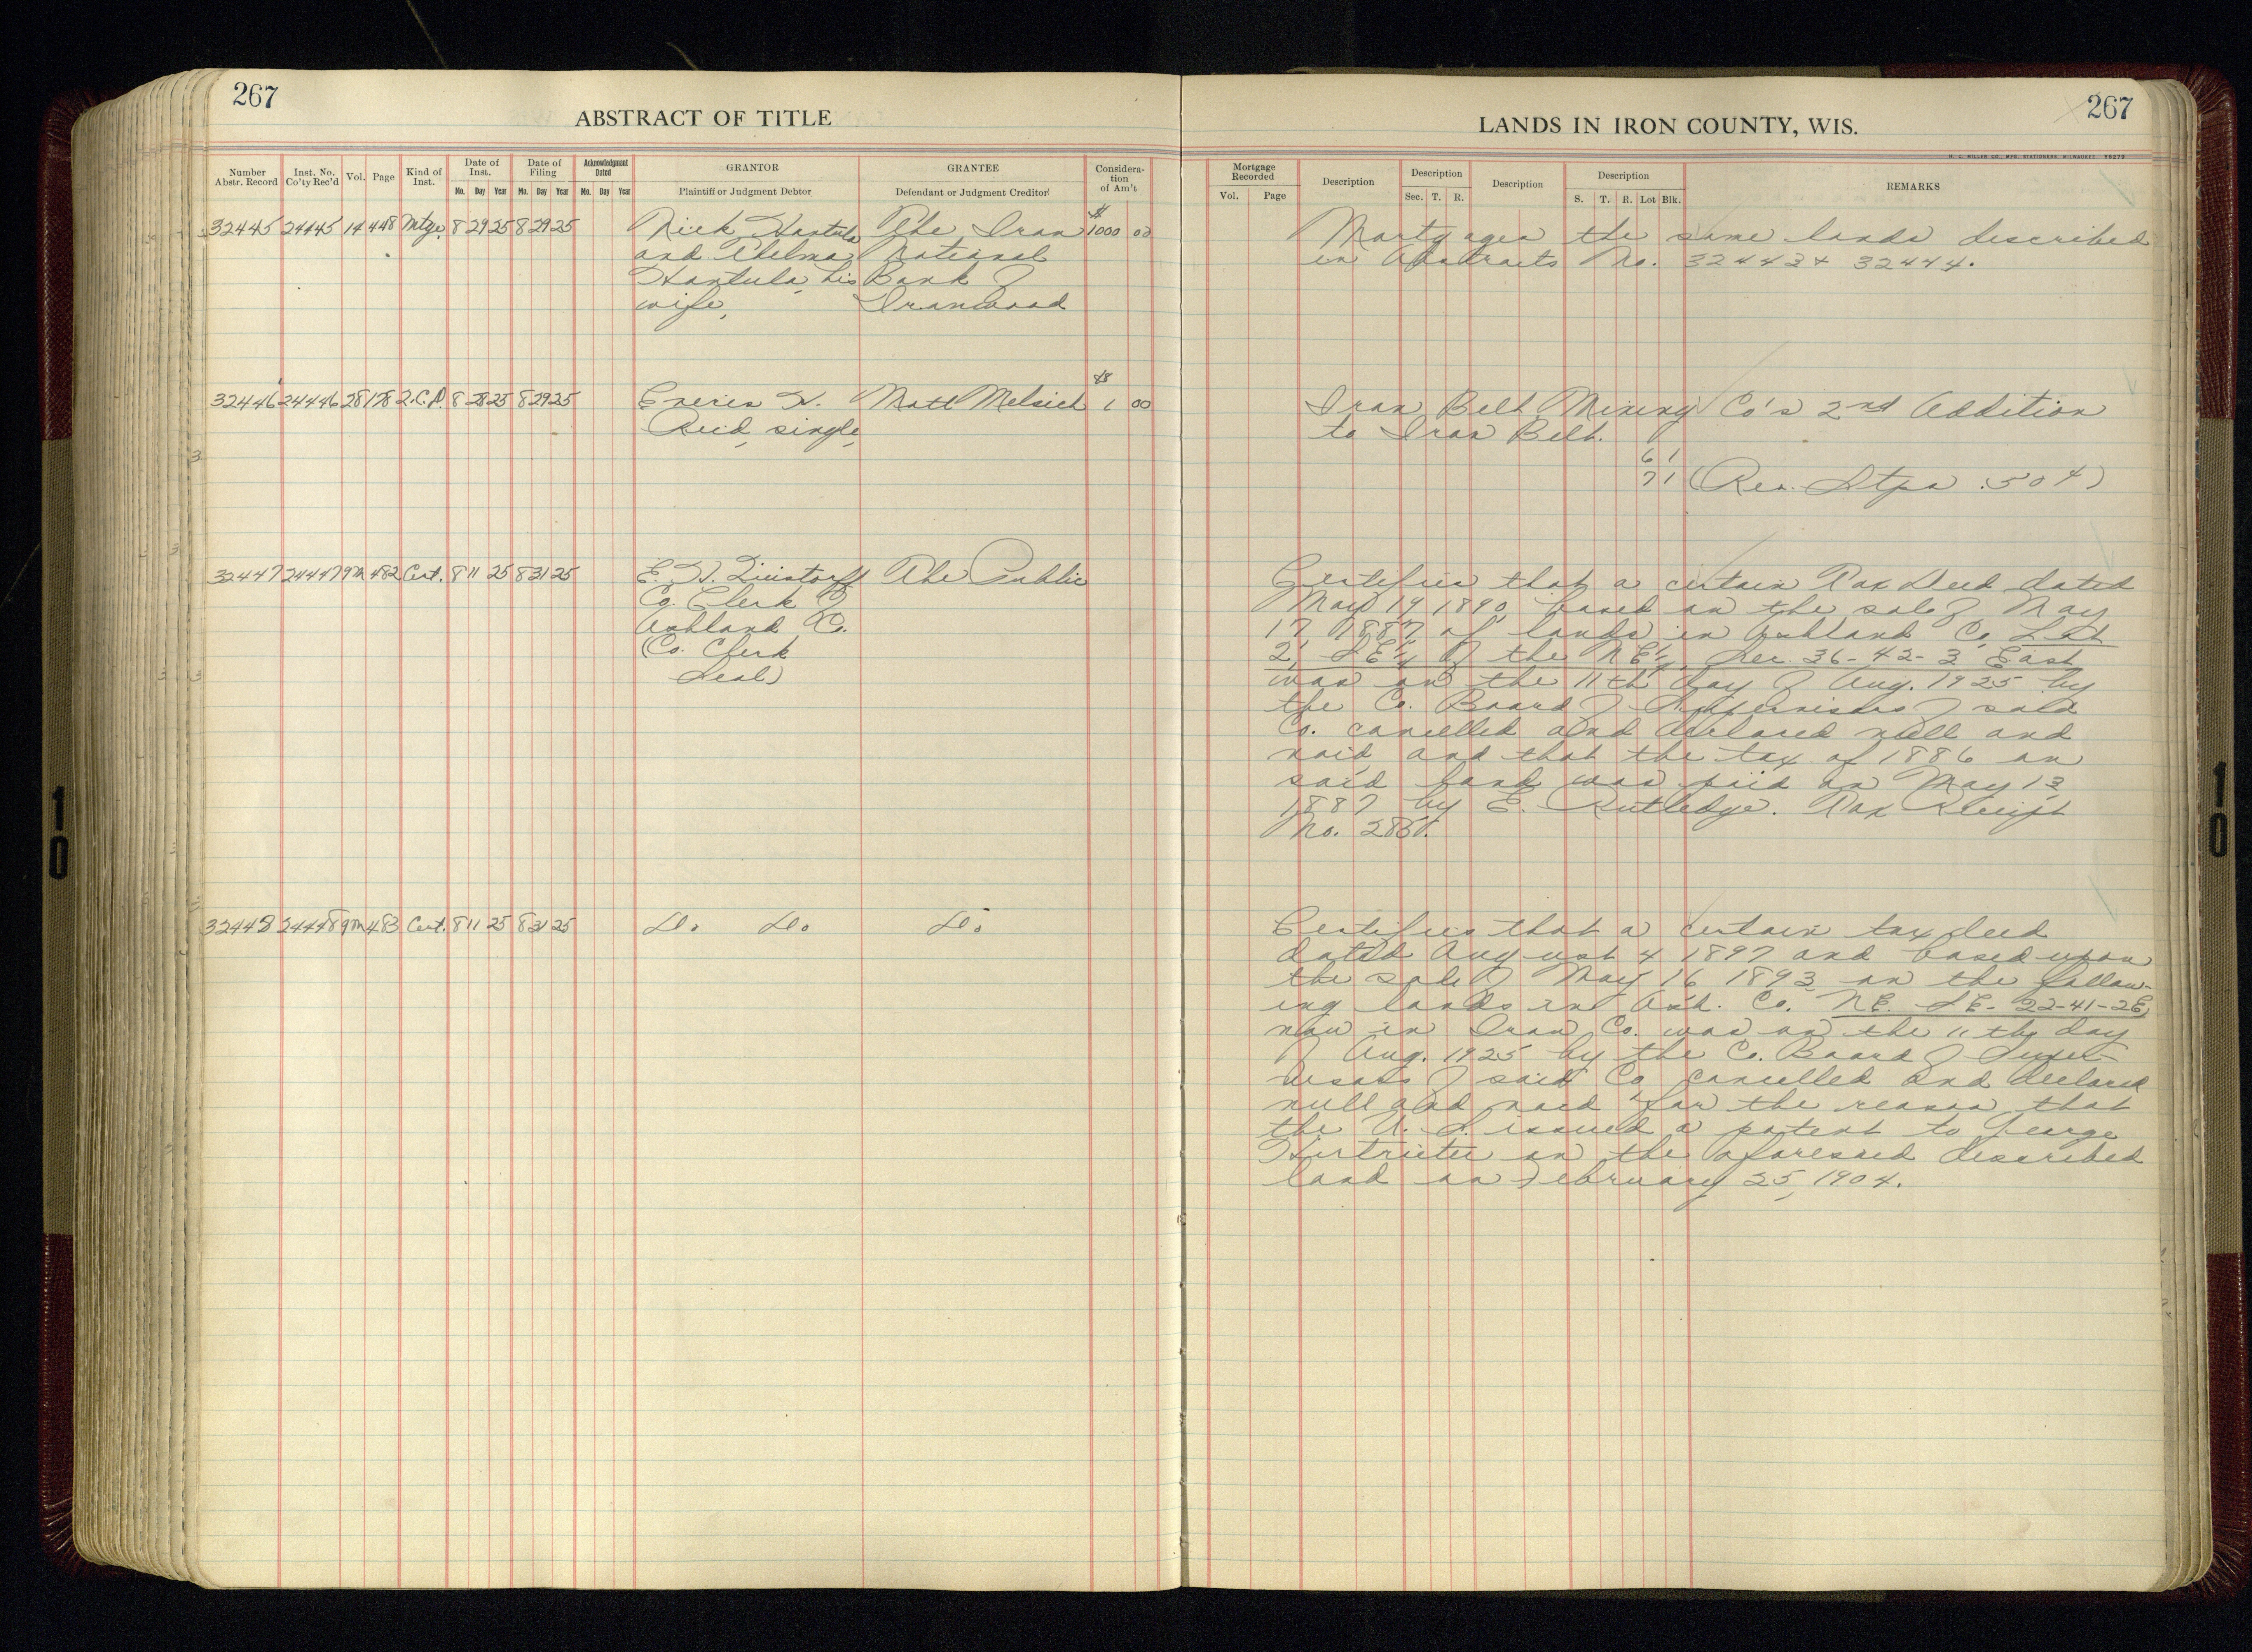 267
ABSTRACT OF TITLE
Number Abstr. Record
Inst. No. Co'ty Rec'd
Vol.
Page
Kind of Inst.
Date of Inst.
Mo. Day Year
Date of Filing
Mo. Day Year
Acknowledgment Dated
Mo. Day Year
GRANTOR
Plaintiff or Judgment Debtor
GRANTEE
Defendant or Judgment Creditor
Considera-
tion
of Am't
32445 24445 14 448 Mtge. 8 29 25 8 29 25 Nick Hantula The Iron $1000 00
and Thelma National
Hantula, his Bank of
wife, Ironwood
32446 24446 28 178 2.C.D. 8 28 25 8 29 25 H. Matt Melsich $1 00
Reid, single,
32447 24447 9M 482 Cert. 8 11 25 8 31 25 E. H. The Public
Co. Clerk of
Ashland Co.
(Co. Clerk
Seal)
32448 24448 9M 483 Cert. 8 11 25 8 31 25 Do. Do. Do.
267
LANDS IN IRON COUNTY, WIS.
H. C. MILLER CO., MFG. STATIONERS, MILWAUKEE
Mortgage Recorded
Vol. Page
Description
Description
Sec. T. R.
Description
Description
S. T. R. Lot Blk.
REMARKS
Mortgages the same lands described
in Abstracts No. 32443 & 32444.
Iron Belt Mining Co's 2nd Addition
to Iron Belt.
6 1
7 1 (Rev. Stps .50¢)
Certifies that a certain Tax Deed dated
May 19 1890, based on the sale of May
17 1887 of lands in Ashland Co. Lot
2, SE¼ of the NE¼, Sec. 36-42-3 East
was on the 11th day of Aug. 1925 by
the Co. Board of Supervisors of said
Co. cancelled and declared null and
void, and that the tax of 1886 on
said land was paid on May 13,
1887 by E. Rutledge. Tax Receipt
No.
Certifies that a certain tax deed
dated August 4 1897 and based upon
the sale of May 16 1893 on the follow-
ing lands in Ash. Co. NE. SE- 22-41-2E,
now in Iron Co. was on the 11th day
of Aug. 1925 by the Co. Board of Super-
visors of said Co. cancelled and declared
null and void for the reason that
the U. S. issued a patent to George
on the aforesaid described
land on February 25, 1904.
10
10